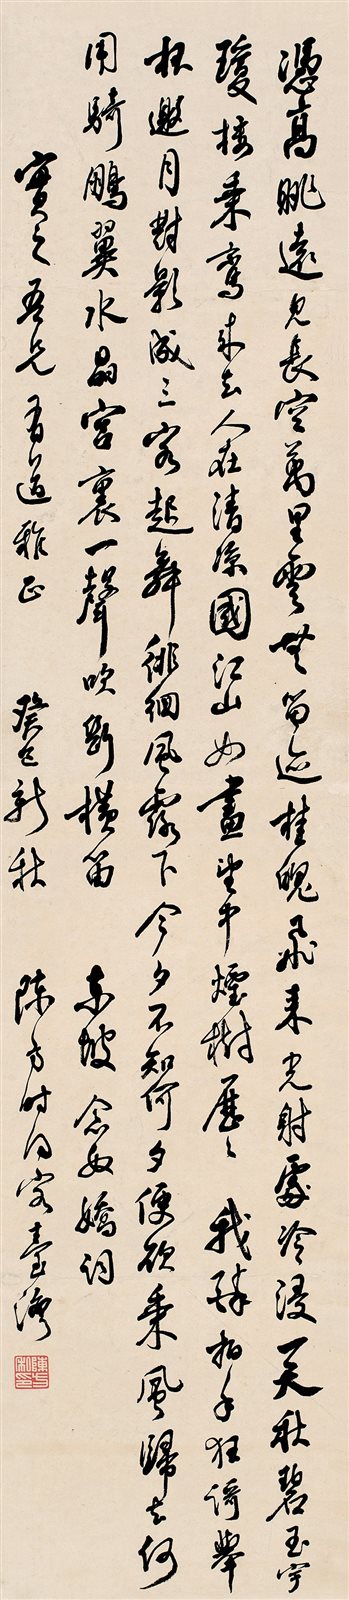 憑高眺遠見長空萬里雲無留迹桂魄飛來光射處冷浸一天秋碧玉宇
瓊樓乘鸞來去人在清涼國江山如畫望中煙樹歷〻 我醉拍手狂謌舉
杯邀月對影成三客起舞徘徊風露下今夕不知何夕便欲乘風歸去何
用騎鵬翼水晶宮裏一聲吹斷橫笛 東坡念奴嬌詞
實之吾兄有道雅正 癸巳新秋 陳方時同客臺灣
陳方私印